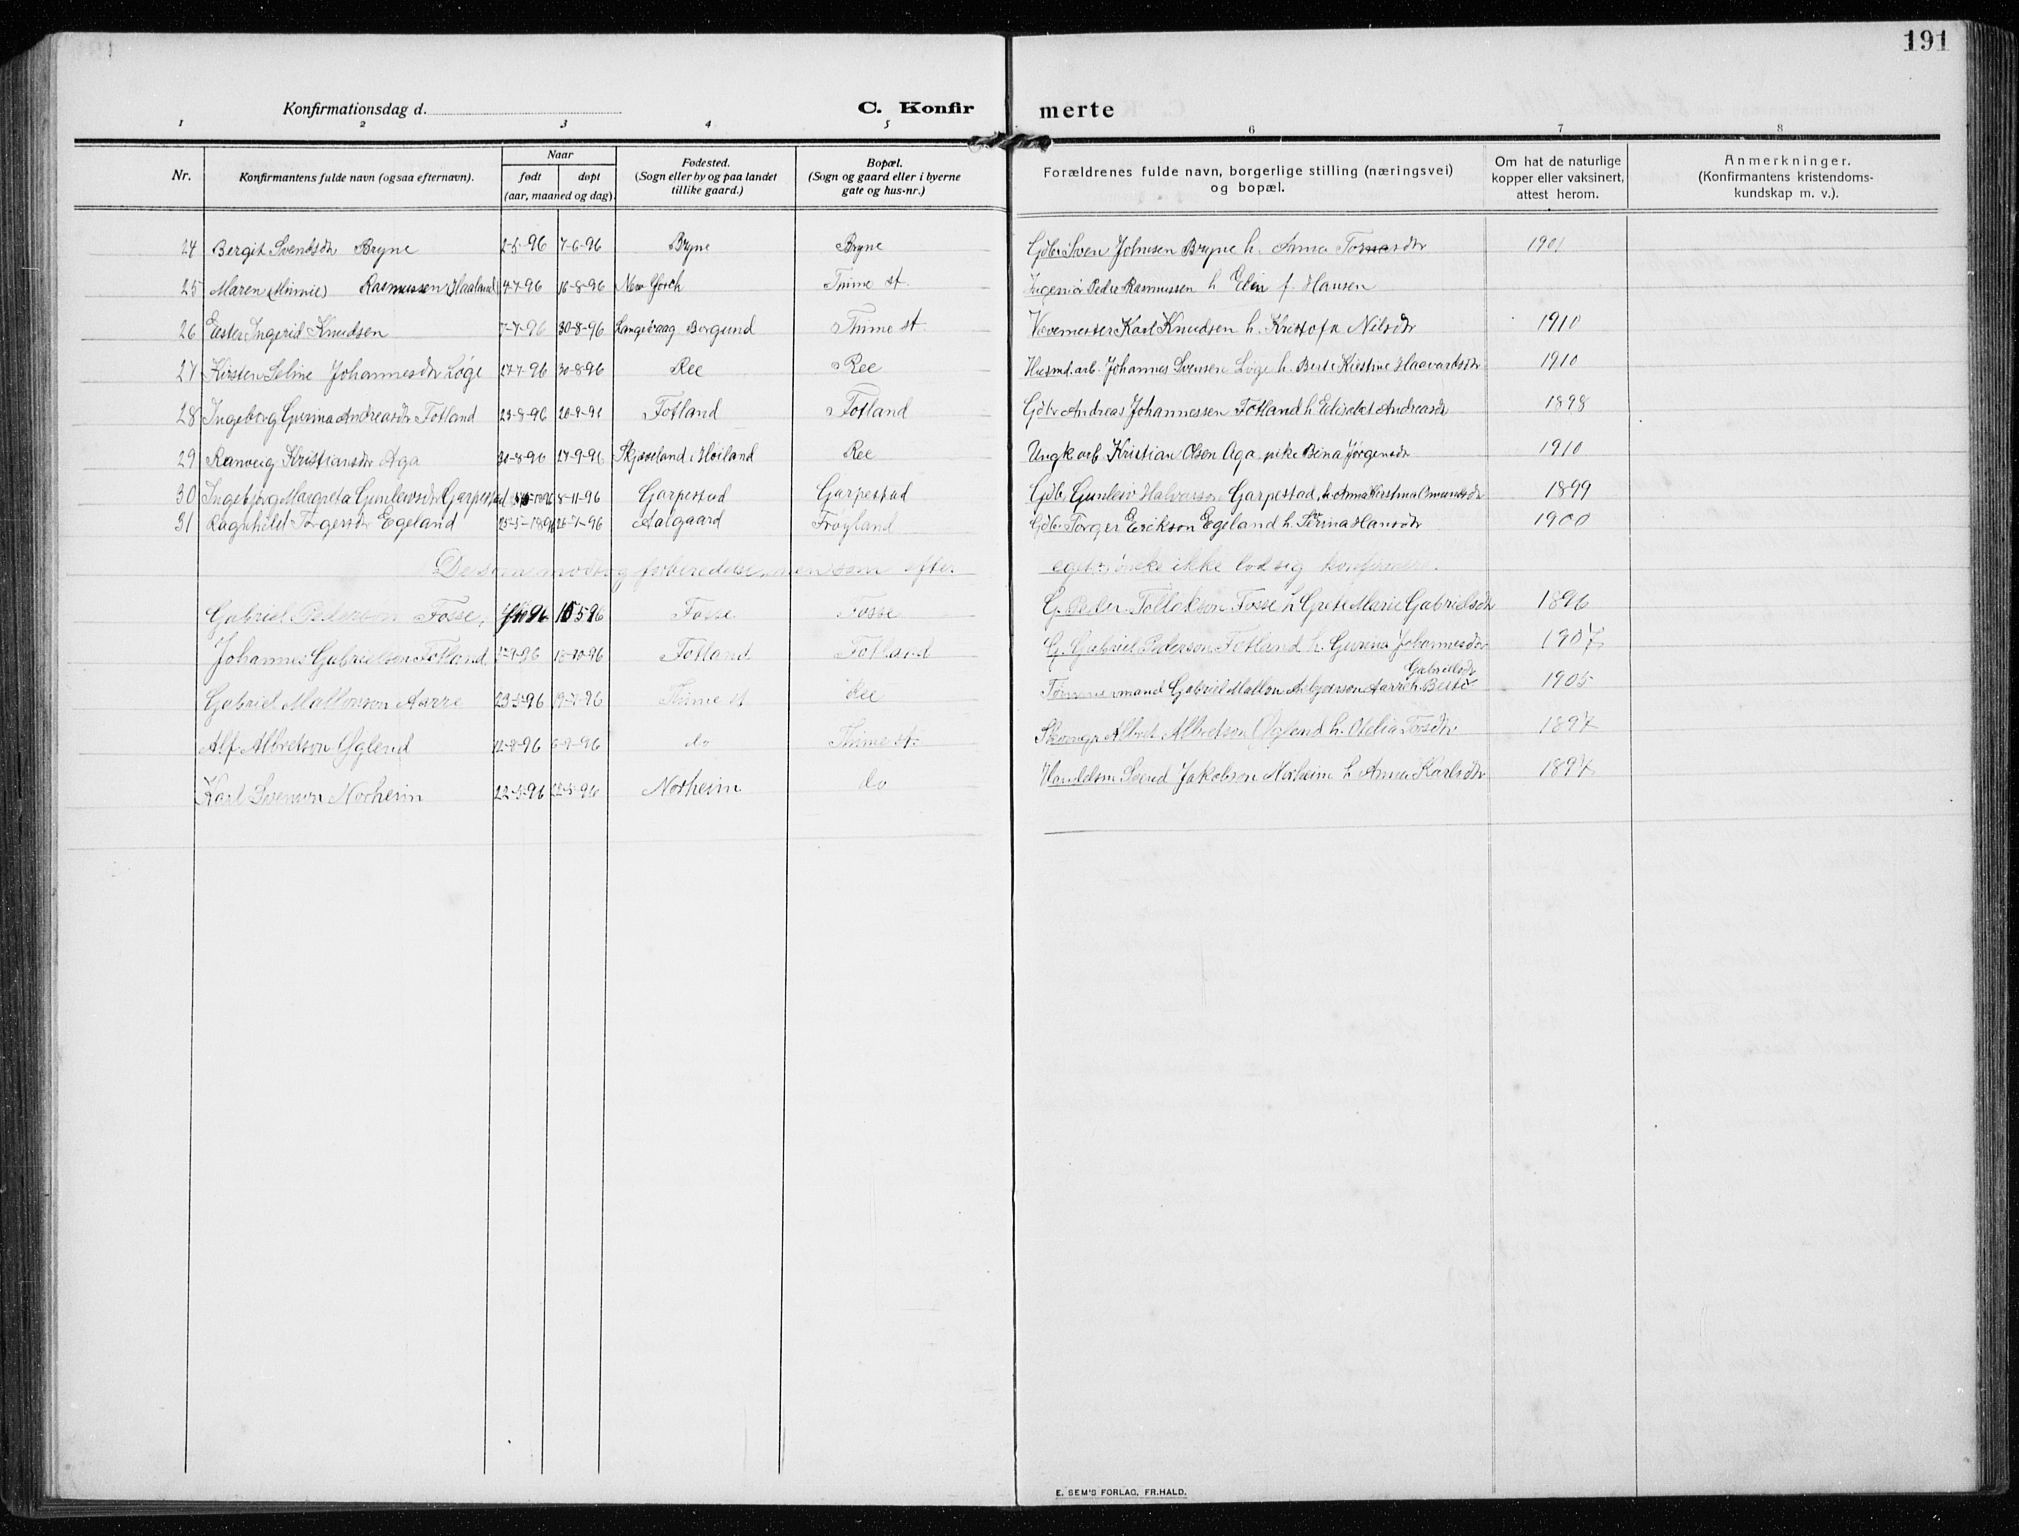 191
Konfirmationsdag d.
C. Konfir merte
1 2 3 4 5 6 7 8
Nr.
Konfirmantens fulde navn (ogsaa efternavn).
Naar
født døpt
(aar, maaned og dag).
Fødested.
(Sogn eller by og paa landet
tillike gaard.)
Bopæl.
(Sogn og gaard eller i byerne
gate og hus-nr.)
Forældrenes fulde navn, borgerlige stilling (næringsvei)
og bopæl.
Om hat de naturlige
kopper eller vaksinert,
attest herom.
Anmerkninger.
(Konfirmantens kristendoms-
kundskap m. v.).
24 Bergit Svendsdr Bryne 2-5-96 7-6-96 Bryne Bryne Gdbr Sven Johnsen Bryne h. Anna 1901
25 Maren (Minnie) Rasmussen (Haaland) 4-7-96 16-8-96 New York Thime st. Ingeniør Peder Rasmussen h Elin f. Hansen
26 Ester Ingerid Knudsen 7-7-96 30-8-96 Langevaag Borgund Thime st. Vævemester Karl Knudsen h. Kristofa Nilsdr 1910
27 Kirsten Seline Johannesdr Løge 27-7-96 30-8-96 Ree Ree Husmd. arb. Johannes Svensen Løge h. Berte Kirstine Haavardsdr 1910
28 Ingeborg Gurina Andreasdr Fotland 23-8-96 20-9-96 Fotland Fotland Gdbr Andreas Johannessen Fotland h Elisabet Andreasdr 1898
29 Ranveig Kristiansdr Aga 30-8-96 27-9-96 Skjæveland, Høiland Ree Ungk arb Kristian Olsen Aga pike Bina Jørgensdr 1910
30 Ingebjørg Margreta Gunleivsdr Garpestad 8-11-96 Garpestad Garpestad Gdb. Gunleiv Halvorson Garpestad, h. Anna Kirstina Omundsdr 1899
31 Ragnhild Torgersdr Egeland 23-5-1896 26-7-96 Aalgaard Frøyland Gdb. Torger Erikson Egeland h. Serina Hansdr 1900
De som modtog forberedelse, men som efter eget ønske ikke lod sig konfirmere.
Gabriel Pederson Fosse, 15 5 96 Fosse Fosse G. Peder Tollakson Fosse h Grete Marie Gabrielsdr 1896
Johannes Gabrielson Fotland 9-96 18-10-96 Fotland Fotland G. Gabriel Pederson Fotland h. Gurina Johannesdr 1907
Gabriel Mallonson Aarre 23-5-96 19-7-96 Thime st Ree Tømmermand Gabriel Mallon Asbjørnson Aarre h Berte Gabrielsdr 1905
Alf Albretson Øglend 12-8-96 6-9-96 do Thime st. Albret Albretson Øglend h. Odelia Torsdr 1897
Karl Svenson Norheim 22-3-96 -5-96 Norheim do Handelsm Svend Jakobson Norheim h Anna Karlsdr 1897
E. SEM'S FORLAG, FR.HALD.